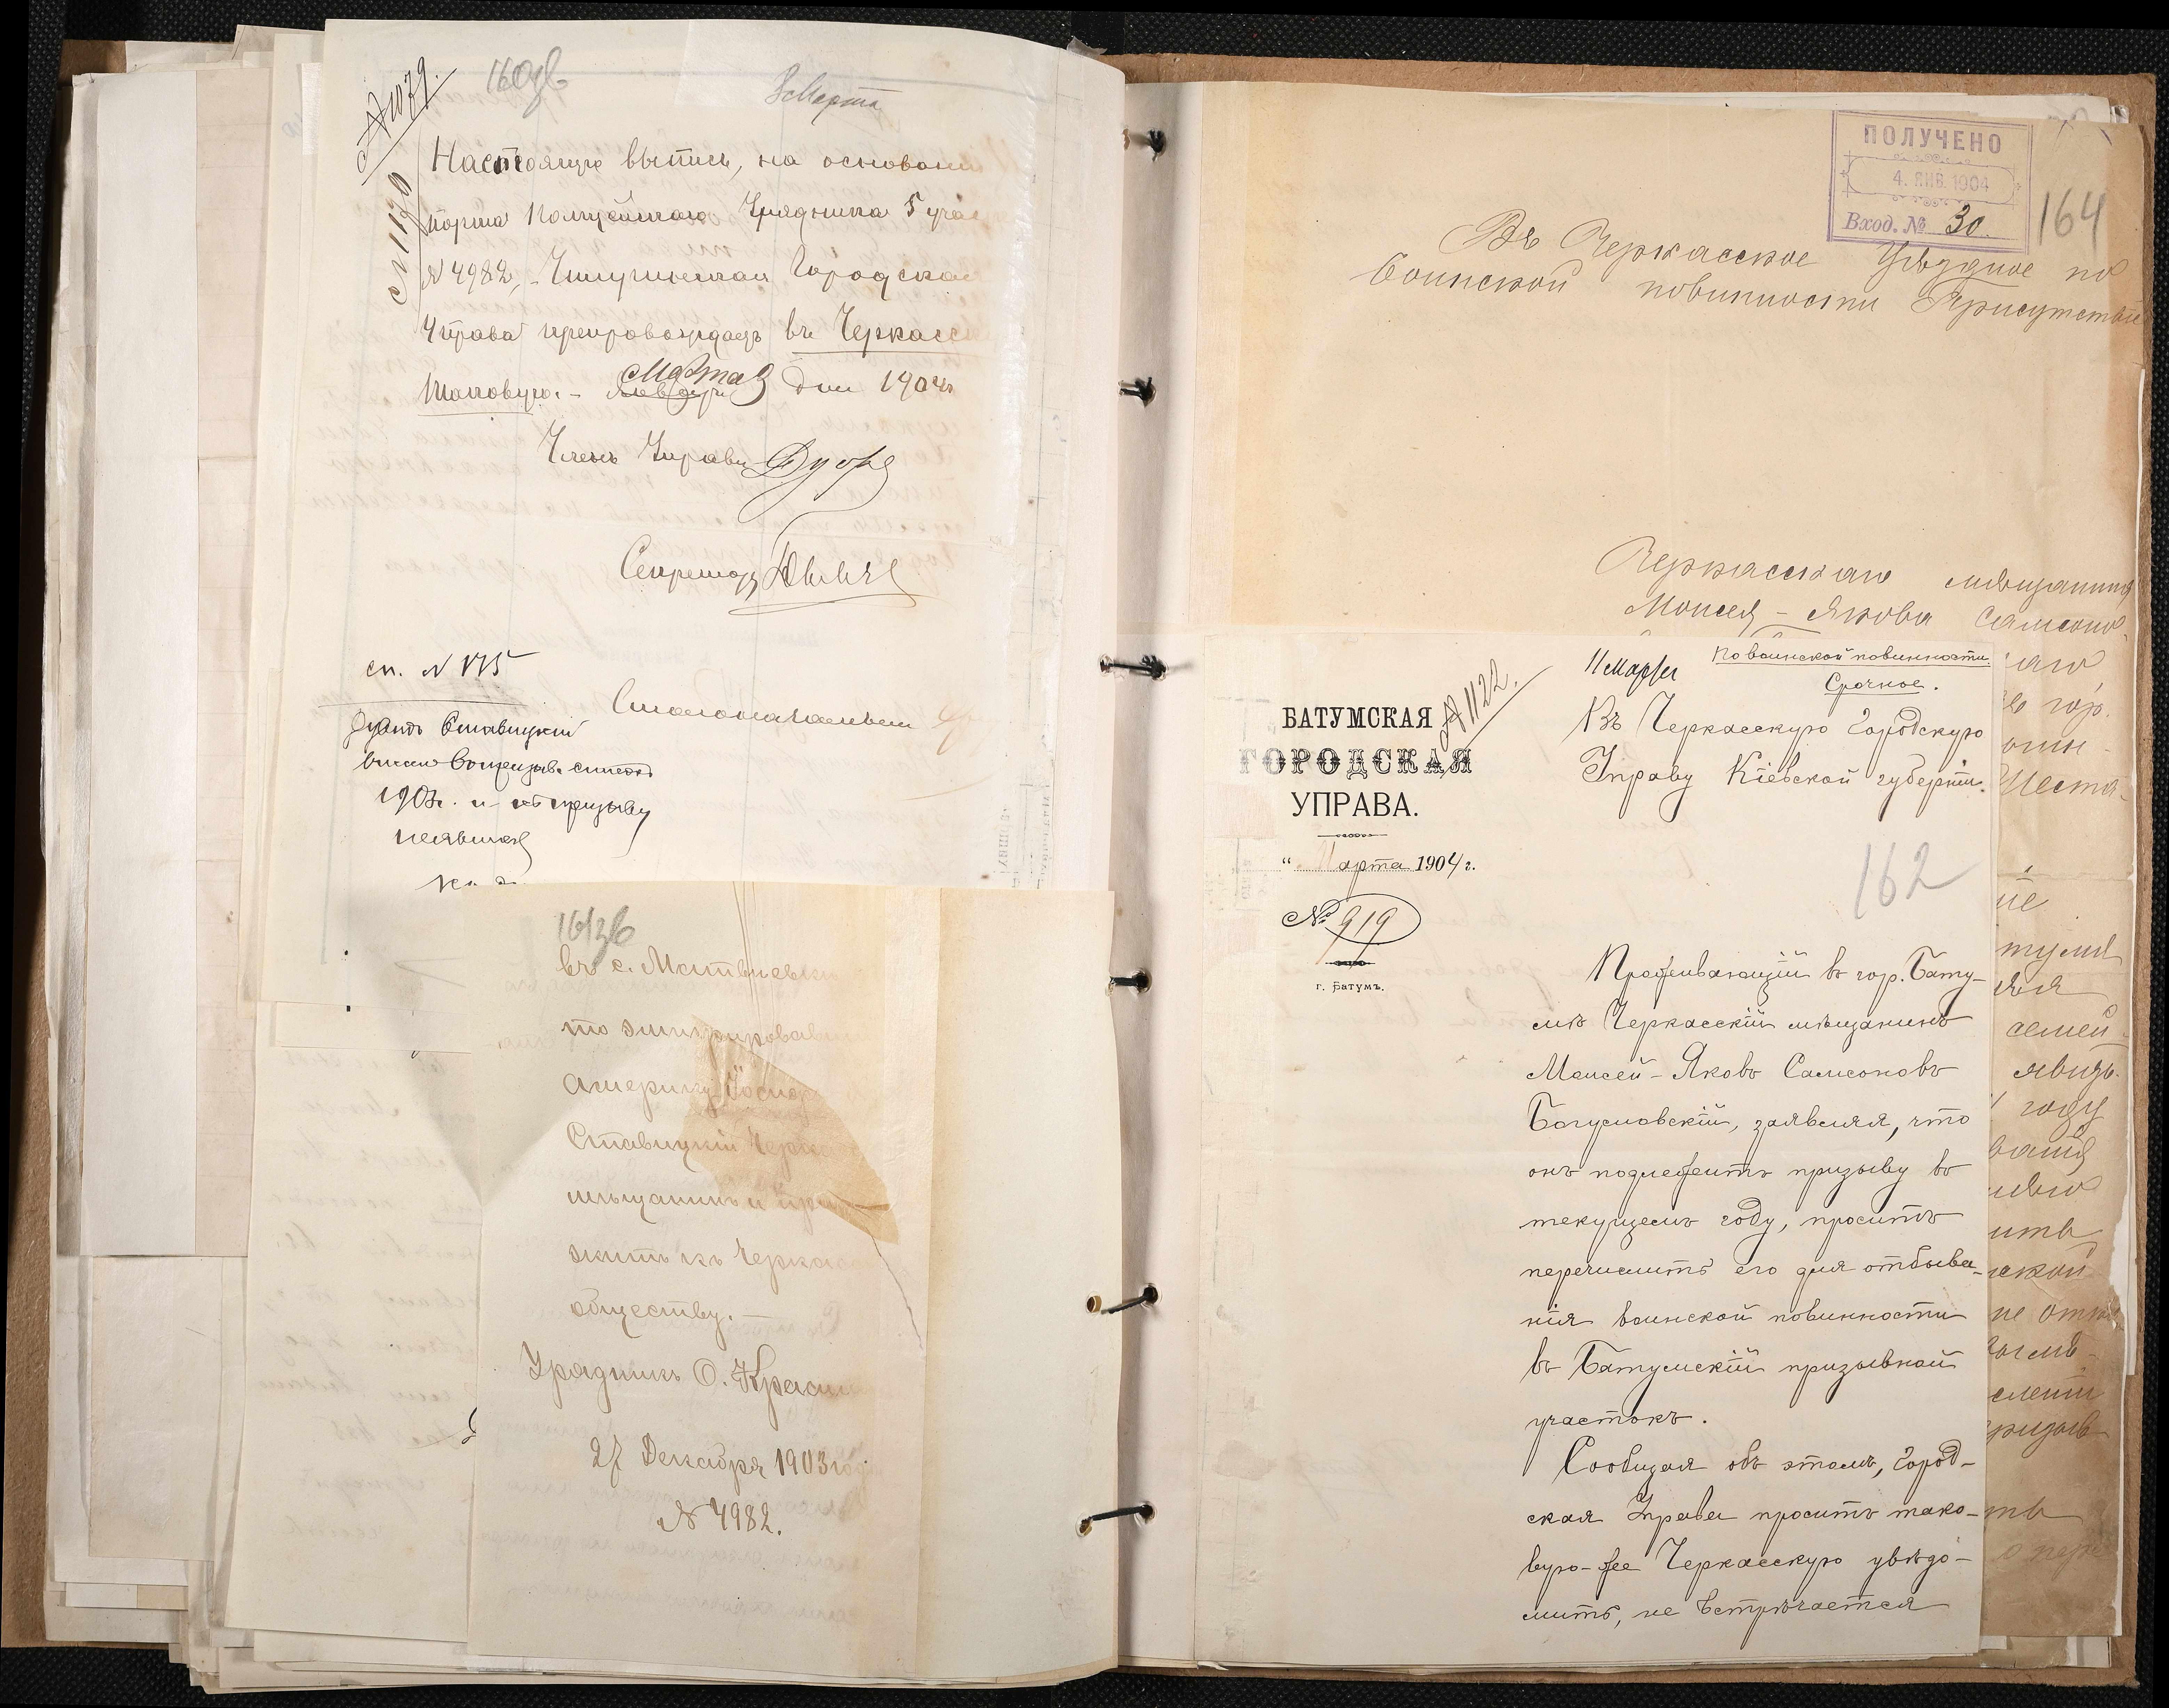 № 1079.
160об
8 Марта
№ 1170
Настоящую выпись, на основании
порта Полицейскаго Урядника 5 учас
№ 4982, - Чигиринская Городская
Управа препровождаетъ въ Черкасс
таковую. - Марта 9 дня 1904
Членъ Управы
Секретарь
сп. № 175
Столоначальникъ
Ставицкій
внесенъ въ призыв. списокъ
1903 г. и къ призыву
неявился
161об
въ с. Матвѣевки
то эмигрировав
Америку Іосиф
Ставицкій Черка
мѣщанинъ и прин
жить къ Черкас
обществу. —
Урядникъ О. Красн
27 Декабря 1903 год
№ 4982.
ПОЛУЧЕНО
4. ЯНВ. 1904
Вход. № 30.
164
Въ Черкасское Уѣздное по
воинской повинности Присутствіе
Черкасскаго мѣщанина
Моисея - Якова Самсоно-
№ 1122.
11 Марта
По воинской повинности.
Срочное.
БАТУМСКАЯ
ГОРОДСКАЯ
УПРАВА.
" Марта 1904 г.
№ 919
г. Батумъ.
Въ Черкасскую Городскую
Управу Кіевской губерніи.
162
Проживающій въ гор. Бату-
мѣ Черкасскій мѣщанинъ
Моисей - Яковъ Самсоновъ
Богуславскій, заявляя, что
онъ подлежитъ призыву въ
текущемъ году, проситъ
перечислить его для отбыва-
нія воинской повинности
въ Батумскій призывной
участокъ.
Сообщая объ этомъ, Город-
ская Управа проситъ тако-
вую-же Черкасскую увѣдо-
мить, не встрѣчается
гор.
семей
году